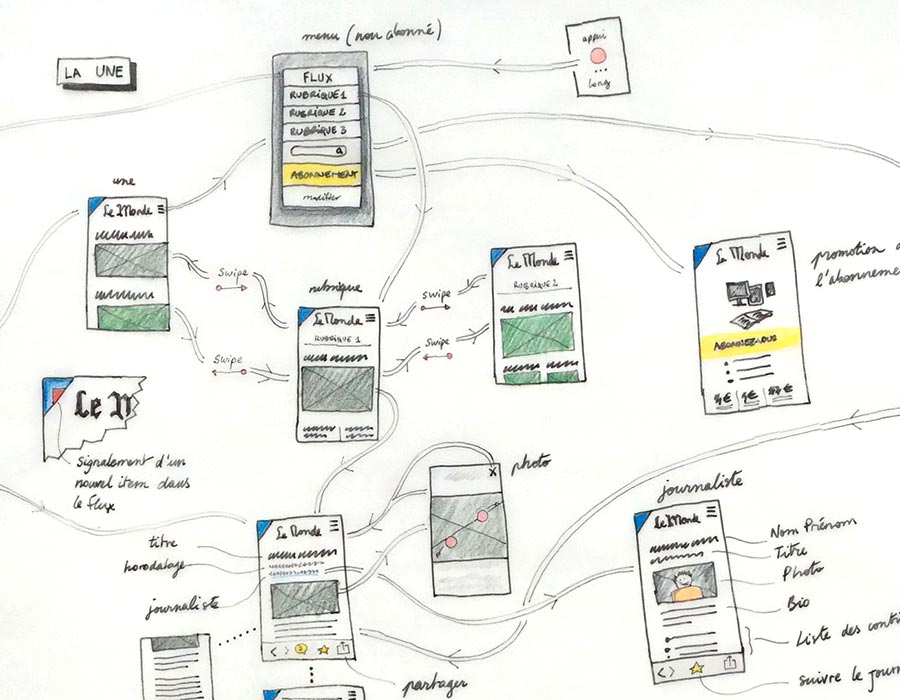 menu (non abonné)
appui
long
LA UNE
FLUX
RUBRIQUE 1
RUBRIQUE 2
RUBRIQUE 3
ABONNEMENT
modifier
une
Le Monde
Swipe
Swipe
rubrique
Le Monde
RUBRIQUE 1
swipe
Swipe
Le Monde
RUBRIQUE 2
Le Monde
ABONNEZ-VOUS
€
€
€
promotion
l'abonneme
Le M
Signalement d'un
nouvel item dans
le flux
photo
X
titre
horodatage
journaliste
Le Monde
partager
journaliste
Le Monde
Nom Prénom
Titre
Photo
Bio
Liste des contri
suivre le journ